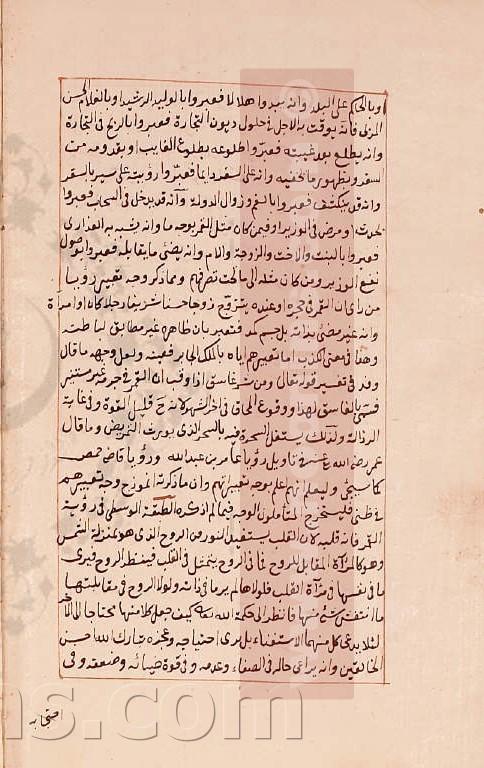 وبالحاكم على البلد وانه يبدو اهلالا فعبروا بالوليد الرشيد او بالغلام الحسن
المزني فانه يوقت به الاجل في حلول ديون التجارة فعبروا بالربح في التجارة
وانه يطلع بعد غيبته فعبروا طلوعه بطلوع الغايب او بقدومه من
السفر وبظهور ما تخفيه وانه على السفر دايما فعبروا رؤيته على سير بالسفر
وانه قد ينكسف فعبروا بالغم وزوال الدولة وانه قد يدخل في السحاب فعبروا
بحدث او مرض في الوزير او فيمن كان مثل القمر بوجه ما وانه يشبه به العذارى
فعبروا بالبنت والاخت والزوجة والام وانه يضئ ما يقابله فعبروا بوصول
نفع الوزير ومن كان مثله الى ما تحت تصرفهم ومما ذكر وجه تعبير رؤيا
من راى ان القمر في حجره او عنده بتزوج زوجا حسنا شريفا رجلا كان او امراة
وانه غير مضئ بذاته بل جسم كمد فتعبير بان ظاهره غير مطابق لباطنه
وهذا في معنى الكذب اما تعبيرهم اياه بالملك الجابر فعينه ولعل وجهه ما قال
وقد في تفسير قوله تعالى ومن شر غاسق اذا وقب ان القمر في جرمه غير مستنير
فسمى بالغاسق لهذا ووقوع المحاق في اخر الشهر لانه ح قليل القوة وفي غاية
الرذالة ولذلك يشتغل السحرة فيه بالسحر الذي يورث التمريض وما قال
عمر رضي الله عنه في تاويل رؤيا عامر بن عبد الله ورؤيا قاضي حمص
كما سيجئ وليعلم انهم علم بوجه تعبيراتهم وان ما ذكرته انموذج وجه تعبيرهم
في ظني فليستخرج المتأملون الوجه فيما لم اذكره الطبقة الوسطى في رؤية
القمر فانه قلبه لان القلب يستفيد النور من الروح الذي هو بمنزلة الشمس
وهو كالمرآة المقابل للروح فما في الروح يتمثل في القلب فينظر الروح فيرى
ما في نفسها في مرآة القلب فلولاها لم ير ما في ذاته ولولا الروح في مقابلتها
ما انتقش شئ منها فانظر الى حكمة الله تعالى كيف جعل كلا منها محتاجا الى الآخر
لئلا يدعى كل منهما الاستغناء بل يرى احتياجه وعجزه تبارك الله احسن
الخالقين وانه يراعى حاله في الصفاء وعدمه وفي قوة ضيائه وضعفه وفي
احتجابه
ns.com